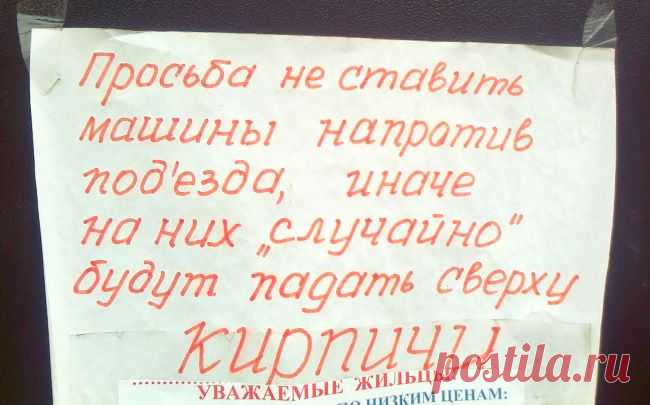 Просьба не ставить
машины напротив
под'езда, иначе
на них „случайно“
будут падать сверху
кирпичи
УВАЖАЕМЫЕ ЖИЛЬЦЫ
ПО НИЗКИМ ЦЕНАМ:
postila.ru